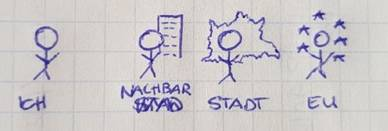 ICH
NACHBAR
STADT
EU